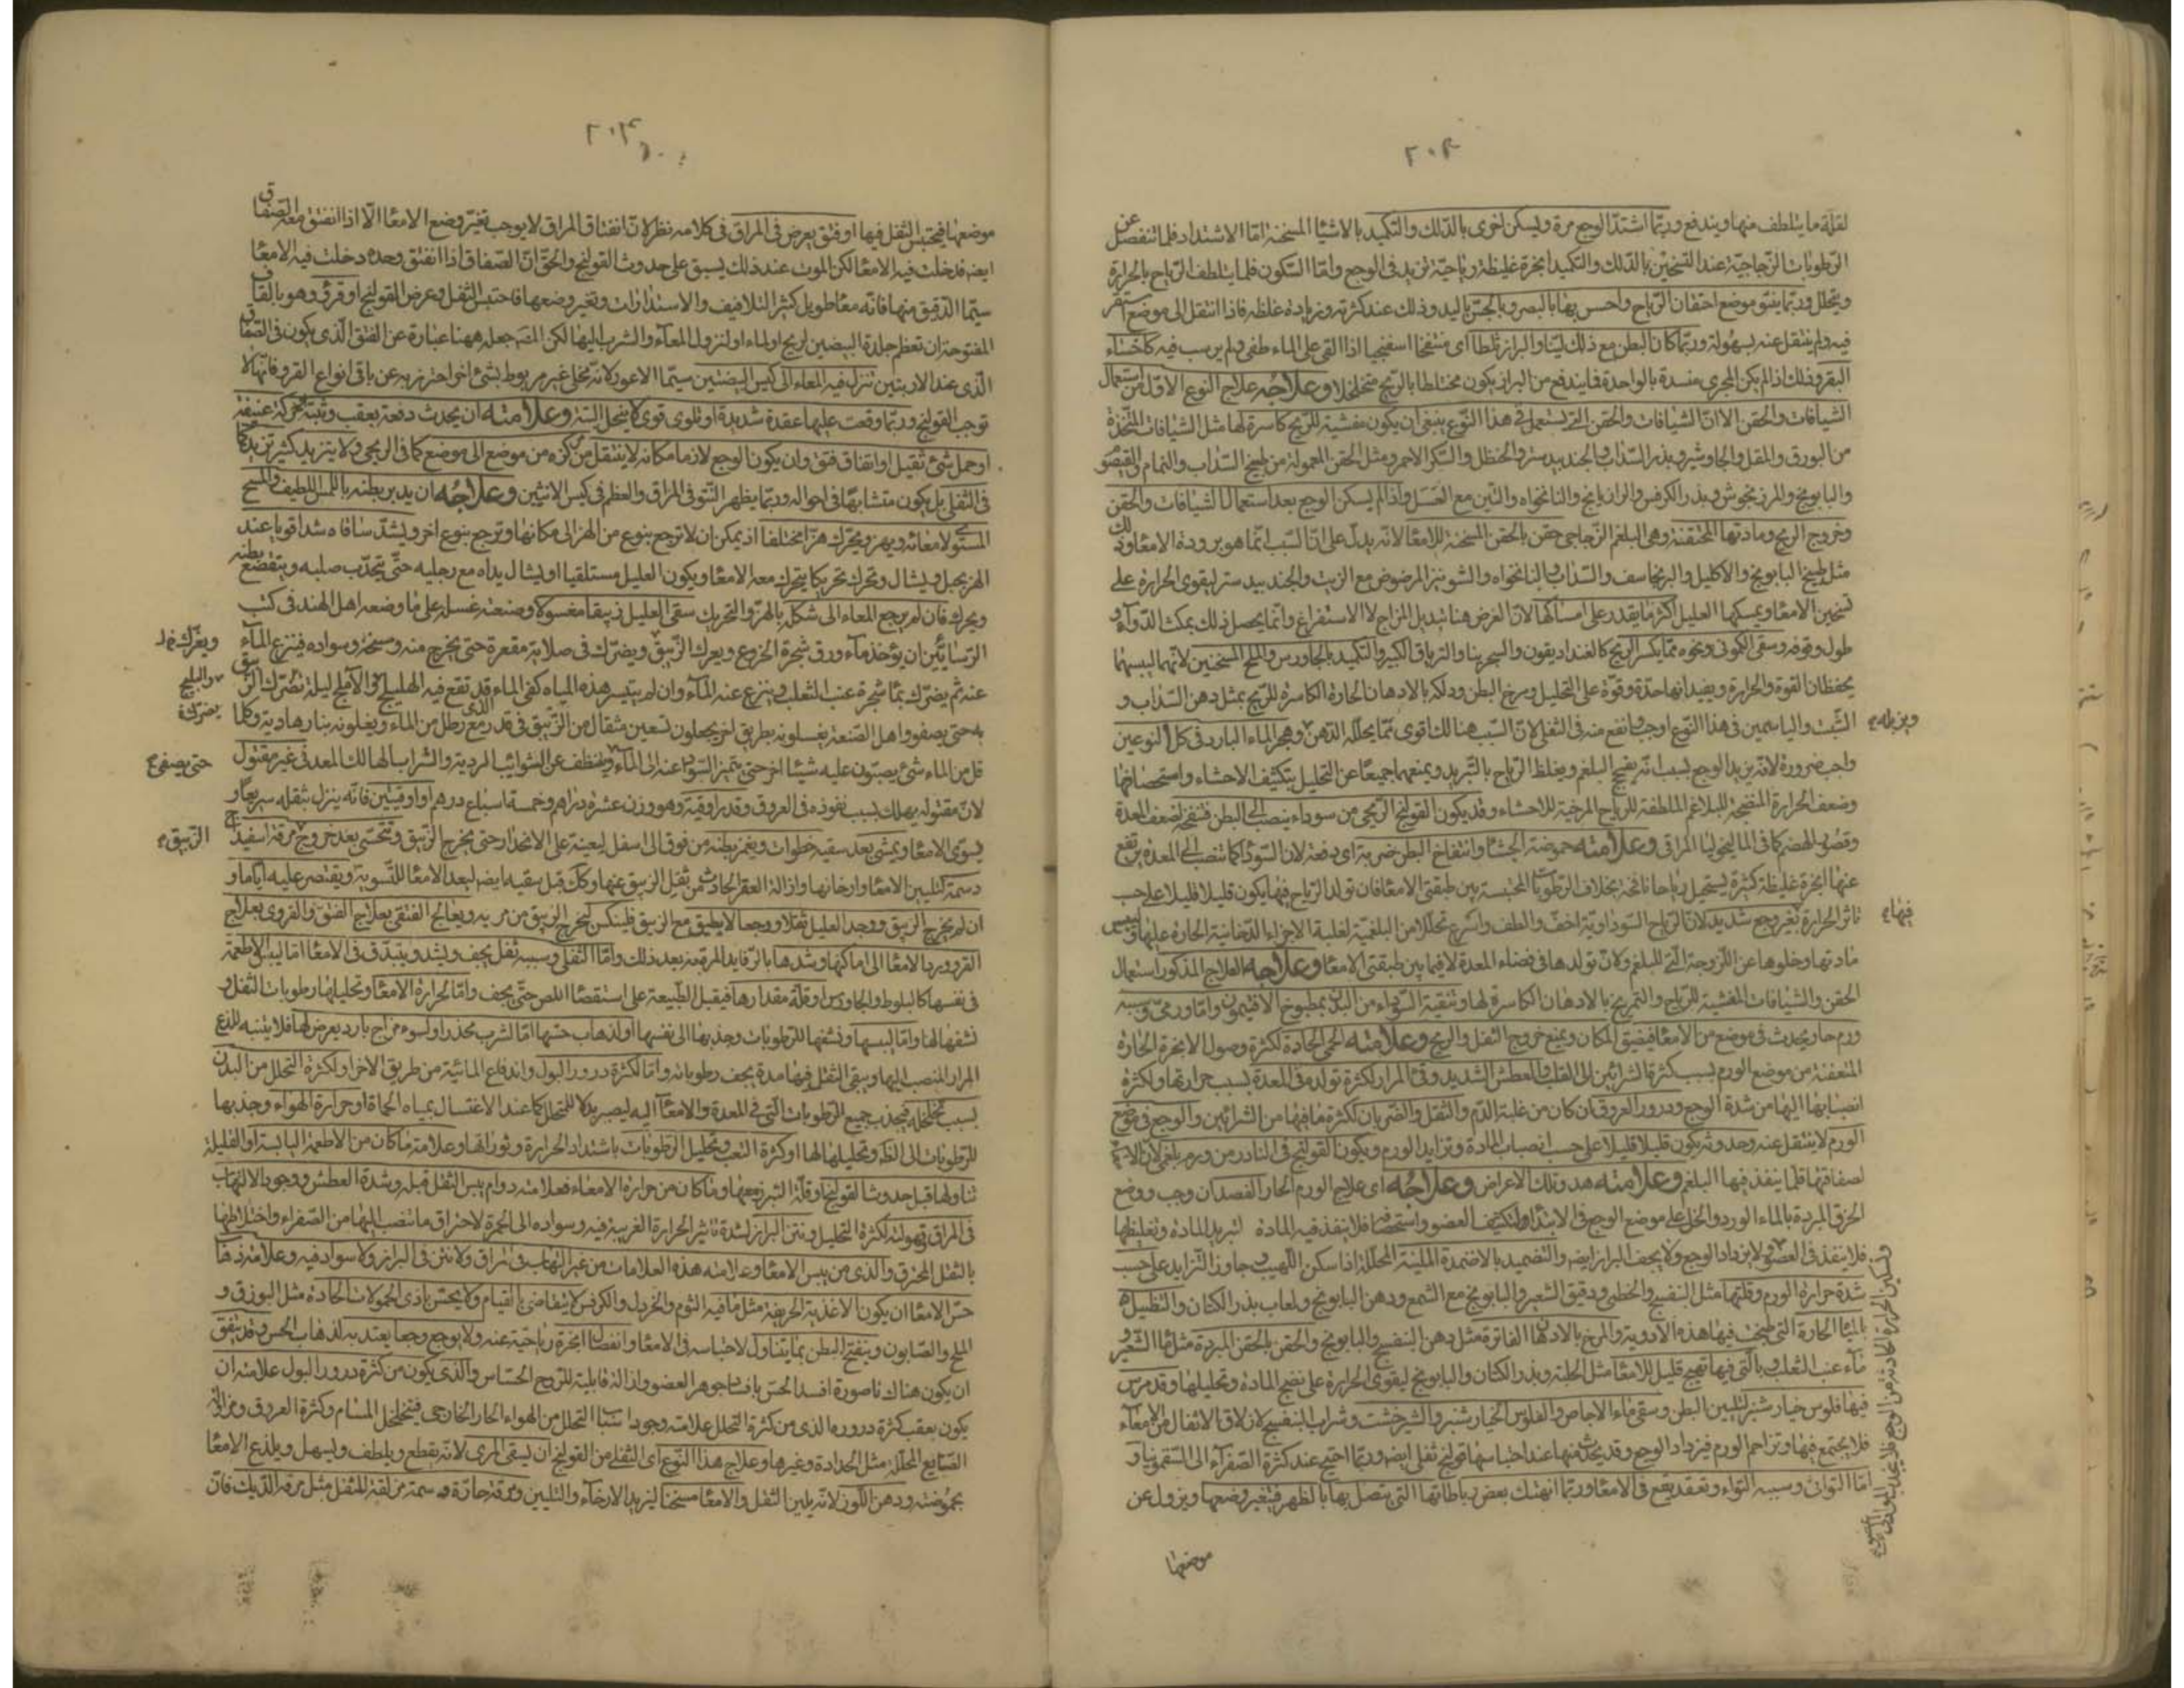 ٢٠٤
لقلة ما يتلطف منها ويندفع وربما اشتد الوجع مرة ويسكن اخرى بالدلك والتكميد بالاشياء المسخنة اما الاشتداد فلما تنفصل عن
الرطوبات الزجاجية عند التسخين بالدلك والتكميد ابخرة غليظة رياحية تزيد في الوجع واما السكون فلما يتلطف الرياح بالحرارة
ويتحلل وربما ينتو موضع احتقان الرياح واحس بها بالبصر وبالجس باليد وذلك عند كثرته وزيادة غلظه فاذا انتقل الى موضع استقر
فيه ولم ينتقل عنه بسهولة وربما كان البطن مع ذلك لينا والبراز ثلطا اى منتفخا اسفنجيا اذا القى على الماء طفى ولم يرسب فيه كاخثاء
البقر وذلك اذا لم يكن المجرى منسدة بالواحدة فايندفع من البراز يكون مختلطا بالريح متخلخلا وعلاجه علاج النوع الاول من استعمال
الشيافات والحقن الا ان الشيافات والحقن التى يستعمل فى هذا النوع ينبغى ان يكون مفشية للريح كاسرة لها مثل الشيافات المتخذة
من البورق والمقل والجاوشير وبذر السذاب والجندبيدستر والحنظل والسكر الاحمر ومثل الحقن المعمولة من طبيخ السذاب والنمام والقيصوم
والبابونج والمرزنجوش وبذر الكرفس والرازيانج والنانخواه والتين مع العسل واذا لم يسكن الوجع بعد استعمال الشيافات والحقن
وخروج الريح ومادتها المحتقنة وهى البلغم الزجاجى حقن بالحقن المسخنة للامعا لانه يدل على ان السبب انما هو برودة الامعا وذلك
مثل طبيخ البابونج والاكليل والبرنجاسف والسذاب والنانخواه والشونيز المرضوض مع الزيت والجندبيدستر ليقوى الحرارة على
تسخين الامعا ويمسكها العليل اكثر ما يقدر على امساكها لان الغرض هنا تبديل المزاج لا الاستفراغ وانما يحصل ذلك بمكث الدواء و
طول وقوفه وسقى الكمونى ونحوه مما يكسر الريح كالغنداديقون والسجرينا والترياق الكبير والتكميد بالجاورس والملح المسخنين لانهما ليبسهما
يحفظان القوة والحرارة ويفيدانها حدة وقوة على التحليل ومرخ البطن ودلكه بالادهان الحارة الكاسرة للريح بمثل دهن السذاب و
الشبت والياسمين فى هذا النوع اوجب وانفع منه فى الثفلى لان السبب هنالك اقوى مما يحلله الدهن وهجر الماء البارد فى كل النوعين
واجب ضرورة لانه يزيد الوجع بسبب انه يفجج البلغم ويغلظ الرياح بالتبريد ويمنعهما جميعا عن التحليل بتكثيف الاحشاء واستحصافها
وضعف الحرارة المنضجة للبلاغم الملطفة للرياح المرخية للاحشاء وقد يكون القولنج الريحى من سوداء ينصب الى البطن فتنفخه لضعف المعدة
وقصور الهضم كما فى الماليخوليا المراقى وعلامته حموضة الجشاء وانتفاخ البطن ضربة اى دفعة لان السوداء كما تنصب الى المعدة يرتفع
عنها ابخرة غليظة كثيرة يستحيل رياحا نافخة بخلاف الرطوبات المحتبسة بين طبقتى الامعا فان تولد الرياح فيها يكون قليلا قليلا على حسب
تاثر الحرارة بغير وجع شديد لان الرياح السوداوية اخف والطف واسرع تحللا من البلغمية لغلبة الاجزاء الدخانية الحارة عليها وليبس
مادتها وخلوها عن اللزوجة التى للبلغم ولان تولدها فى فضاء المعدة لا فيما بين طبقتى الامعا وعلاجه العلاج المذكور استعمال
الحقن والشيافات المفشية للرياح والتمريخ بالادهان الكاسرة لها وتنقية السوداء من البدن بمطبوخ الافتيمون واما ورمى وسببه
ورم حار يحدث فى موضع من الامعا فيضيق المكان ويمنع خروج الثفل والريح وعلامته الحمى الحادة لكثرة وصول الابخرة الحارة
المتعفنة من موضع الورم بسبب كثرة الشرائين الى القلب والعطش الشديد وقئ المرار لكثرة تولده فى المعدة بسبب حرارتها ولكثرة
انصبابها اليها من شدة الوجع ودرور العروق ان كان من غلبة الدم والثقل والضربان لكثرة ما فيها من الشرائين والوجع فى موضع
الورم لا ينتقل عنه وحدوثه يكون قليلا قليلا على حسب انصباب المادة وتزايد الورم ويكون القولنج فى النادر من ورم بلغمى لان الامعا
لصفاقتها قلما ينفذ فيها البلغم وعلامته هذه تلك الاعراض وعلاجه اى علاج الورم الحار الفصد ان وجب ووضع
الخرق المبردة بالماء الورد والخل على موضع الوجع فى الابتداء ليكثف العضو واستحصافه فلا ينفذ فيه المادة لتبريد المادة وتغليظها
فلا ينفذ فى العضو ولا يزداد الوجع ولا يجف البراز ايضا والتضميد بالاضمدة الملينة المحللة اذا سكن اللهيب وجاوز التزايد على حسب
شدة حرارة الورم وقلتها مثل البنفسج والخطمى ودقيق الشعير والبابونج مع الشمع ودهن البابونج ولعاب بذر الكتان والتنطيل
بالمياه الحارة التى طبخت فيها هذه الادوية والمرخ بالادهان الفاترة مثل دهن البنفسج والبابونج والحقن بالحقن المبردة مثل ماء الشعير و
ماء عنب الثعلب بالتى فيها تهييج قليل للامعا مثل الحلبة وبذر الكتان والبابونج ليقوى الحرارة على نضج المادة وتحليلها وقد مرس
فيها فلوس خيار شنبر لتليين البطن وسقى ماء الاجاص والفلوس الخيار شنبر والشيرخشت وشراب البنفسج لازلاق الاثفال من الامعاء
فلا يجتمع فيها وتزاحم الورم فيزداد الوجع وقد يحدث منها عند احتباسها قولنج ثفلى ايضا وربما احتيج عند كثرة الصفراء الى السقمونيا و
اما التوائى وسببه التواء وتعقد يقع فى الامعا وربما انهتك بعض رباطاتها التى يتصل بها بالظهر فيتغير وضعها ويزول عن
موضعها
فيها
٢٠٤
موضعها فيحتبس الثفل فيها او فتق يعرض فى المراق فى كلامه نظر لان انفتاق المراق لا يوجب تغير وضع الامعا الا اذا انفتق معه الصفاق
ايضا فدخلت فيه الامعا لكن الموت عند ذلك يسبق على حدوث القولنج والحق ان الصفاق اذا انفتق وحده دخلت فيه الامعا
سيما الدقيق منها فانه معا طويل كثير التلافيف والاستدارات وتغير وضعها فاحتبس الثفل وعرض القولنج او قرو وهو بالقاف
المفتوحة ان تعظم جلدة البيضين لريح او لماء او لنزول المعاء والثرب اليها لكن المص جعله ههنا عبارة عن الفتق الذى يكون فى الصفاق
الذى عند الاربتين تنزل فيه المعاء الى كيس البيضتين سيما الاعور لانه مخلى غير مربوط بشئ اخر احترز به عن باقى انواع القرو فانها لا
توجب القولنج وربما وقعت عليها عقدة شديدة او تلوى قوى لا ينحل البتة وعلامته ان يحدث دفعة بعقب وثبة وحركة عنيفة
او حمل شئ ثقيل او اتفاق فتق وان يكون الوجع لازما مكانه لا ينتقل من مركزه من موضع الى موضع كما فى الريحى ولا يتزيد كثير تزيد كما
فى الثفلى بل يكون متشابها فى احواله وربما يظهر النتو فى المراق والعظم فى كيس الانثيين وعلاجه ان يدبر بطنه باللمس اللطيف والمسح
المستوى لامعائه ويهز ويحرك هزا مختلفا اذ يمكن ان لا ترجع بنوع من الهز الى مكانها وترجع بنوع اخر ويشد ساقاه شدا قويا عند
الهز بحبل ويشال وتحرك تحريكا يتحرك معه الامعا ويكون العليل مستلقيا او يشال يداه مع رجليه حتى يتحدب صلبه ويتقصع بطنه
ويحرك فان لم يرجع المعاء الى شكله بالهز والتحريك سقى العليل زيبقا مغسولا وصنعة غسله على ما وضعه اهل الهند فى كتب
الرسايين ان يؤخذ ماء ورق شجرة الخروع ويعرك الزيبق ويضرك فى صلابة مقعرة حتى يخرج منه وسخه وسواده فينزع الماء
عنه ثم يضرك بماء شجرة عنب الثعلب وينزع عنه الماء وان لم يتيسر هذه المياه كفى الماء قد تقع فيه الهليلج والاملج ليلة يضرك الزيبق
به حتى يصفو واهل الصنعة يغسلونه بطريق اخر يجعلون تسعين مثقال من الزيبق فى قدر مع رطل من الماء ويغلونه بنار هادية وكلما
قل من الماء شئ يصبون عليه شيئا اخر حتى يتميز السواد عنه الى الماء وينظف عن الشوائب الردية والتراب الهالك المعدنى غير مقتول
لان مقتوله يهلك بسبب نفوذه فى العروق وقدر اوقية وهو وزن عشرة دراهم وخمسة اسباع درهم او اوقيتين فانه ينزل بثقله سريعا و
يسوى الامعا ويمشى بعد سقيه خطوات ويغمز بطنه من فوق الى اسفل ليعينه على الانحدار حتى يخرج الزيبق وتتحسى بعد خروج مرقة اسفيداج
دسمة لتليين الامعا وارخائها وازالة العقر الحادث من ثقل الزيبق عنها وكك قبل سقيه ايضا ليعد الامعا للتسوية ويقتصر عليه اياما و
ان لم يخرج الزيبق ووجد العليل ثقلا ووجعا لا يطيق مع الزيبق فلينكس ليخرج الزيبق من مريه ويعالج الفتقى بعلاج الفتق والقروى بعلاج
القرو ورد الامعا الى اماكنها وشدها بالرفايد المرقعة بعد ذلك واما الثفلى وسببه ثفل يجف ويشد ويتبدق فى الامعا اما ليبس الاطعمة
فى نفسها كالبلوط والجاورس او قلة مقدارها فيقبل الطبيعة على استقصاء المص حتى يجف واما لحرارة الامعا وتحليلها رطوبات الثفل و
نشفها لها واما ليبسها ونشفها للرطوبات وجذبها الى نفسها او لذهاب حسها اما لشرب مخدر او لسوء مزاج بارد يعرض لها فلا يتنبه للذع
المرار المنصب اليها ويبقى الثفل فيها مدة يجف رطوباته واما لكثرة درور البول واندفاع المائية من طريق الاخر او لكثرة التحلل من البدن
بسبب تخلخله فيجذب جميع الرطوبات التى فى المعدة والامعا اليه ليصير بدلا للمتحلل كما عند الاغتسال بمياه الحماة او حرارة الهواء وجذبها
للرطوبات الى الظاهر وتحليلها لها او كثرة التعب وتحليل الرطوبات باشتداد الحرارة وثورانها وعلامته ما كان من الاطعمة اليابسة او القليلة
تناولها قبل حدوث القولنج وقلة التبرز معها وما كان من حرارة الامعاء فعلامته دوام يبس الثفل قبله وشدة العطش ووجود الالتهاب
فى المراق وقحولته لكثرة التحليل ونتن البراز لشدة تاثير الحرارة الغريبة فيه وسواده الى الحمرة لاحتراق ما تنصب اليها من الصفراء واختلاطها
بالثفل المحترق والذى من يبس الامعا وعلامته هذه العلامات من غير التهاب فى المراق ولا نتن فى البراز ولا سواد فيه وعلامته ذهاب
حس الامعا ان يكون الاغذية الحريفة مثل ما فيه الثوم والخردل والكرفس لا يتقاضى بالقيام ولا يحس باذى الحمولات الحادة مثل البورق و
الملح والصابون وينتفخ البطن بما يتناول لاحتباسه فى الامعا وانفصال ابخرة رياحية عنه ولا يوجع وجعا يعتد به لذهاب الحس وقد يتفق
ان يكون هناك ناصورة افسد الحس بافساد جوهر العضو وازالة قابلية للروح الحساس والذى يكون من كثرة درور البول علامته ان
يكون بعقب كثرة دروره الذى من كثرة التحلل علامته وجود اسباب التحلل من الهواء الحار الخارجى فيتخلخل المسام وكثرة العروق ومزاولة
الصنايع المحللة مثل الحدادة وغيرها وعلاج هذا النوع اى الثفلى من القولنج ان يسقى المرى لانه يقطع ويلطف ويسهل ويلذع الامعا
بحموضته ودهن اللوز لانه يلين الثفل والامعا مسخنا ليزيد الارخاء والتليين ومرقة حارة دسمة مزلقة للثفل مثل مرقة الديك فان
والبليج
حتى يصفى
الزيبق